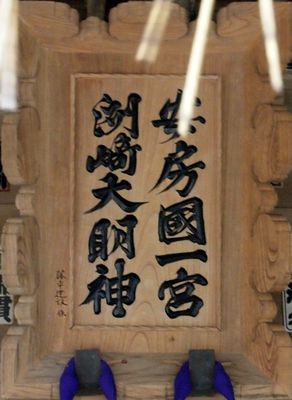 安房國一宮
洲崎大明神